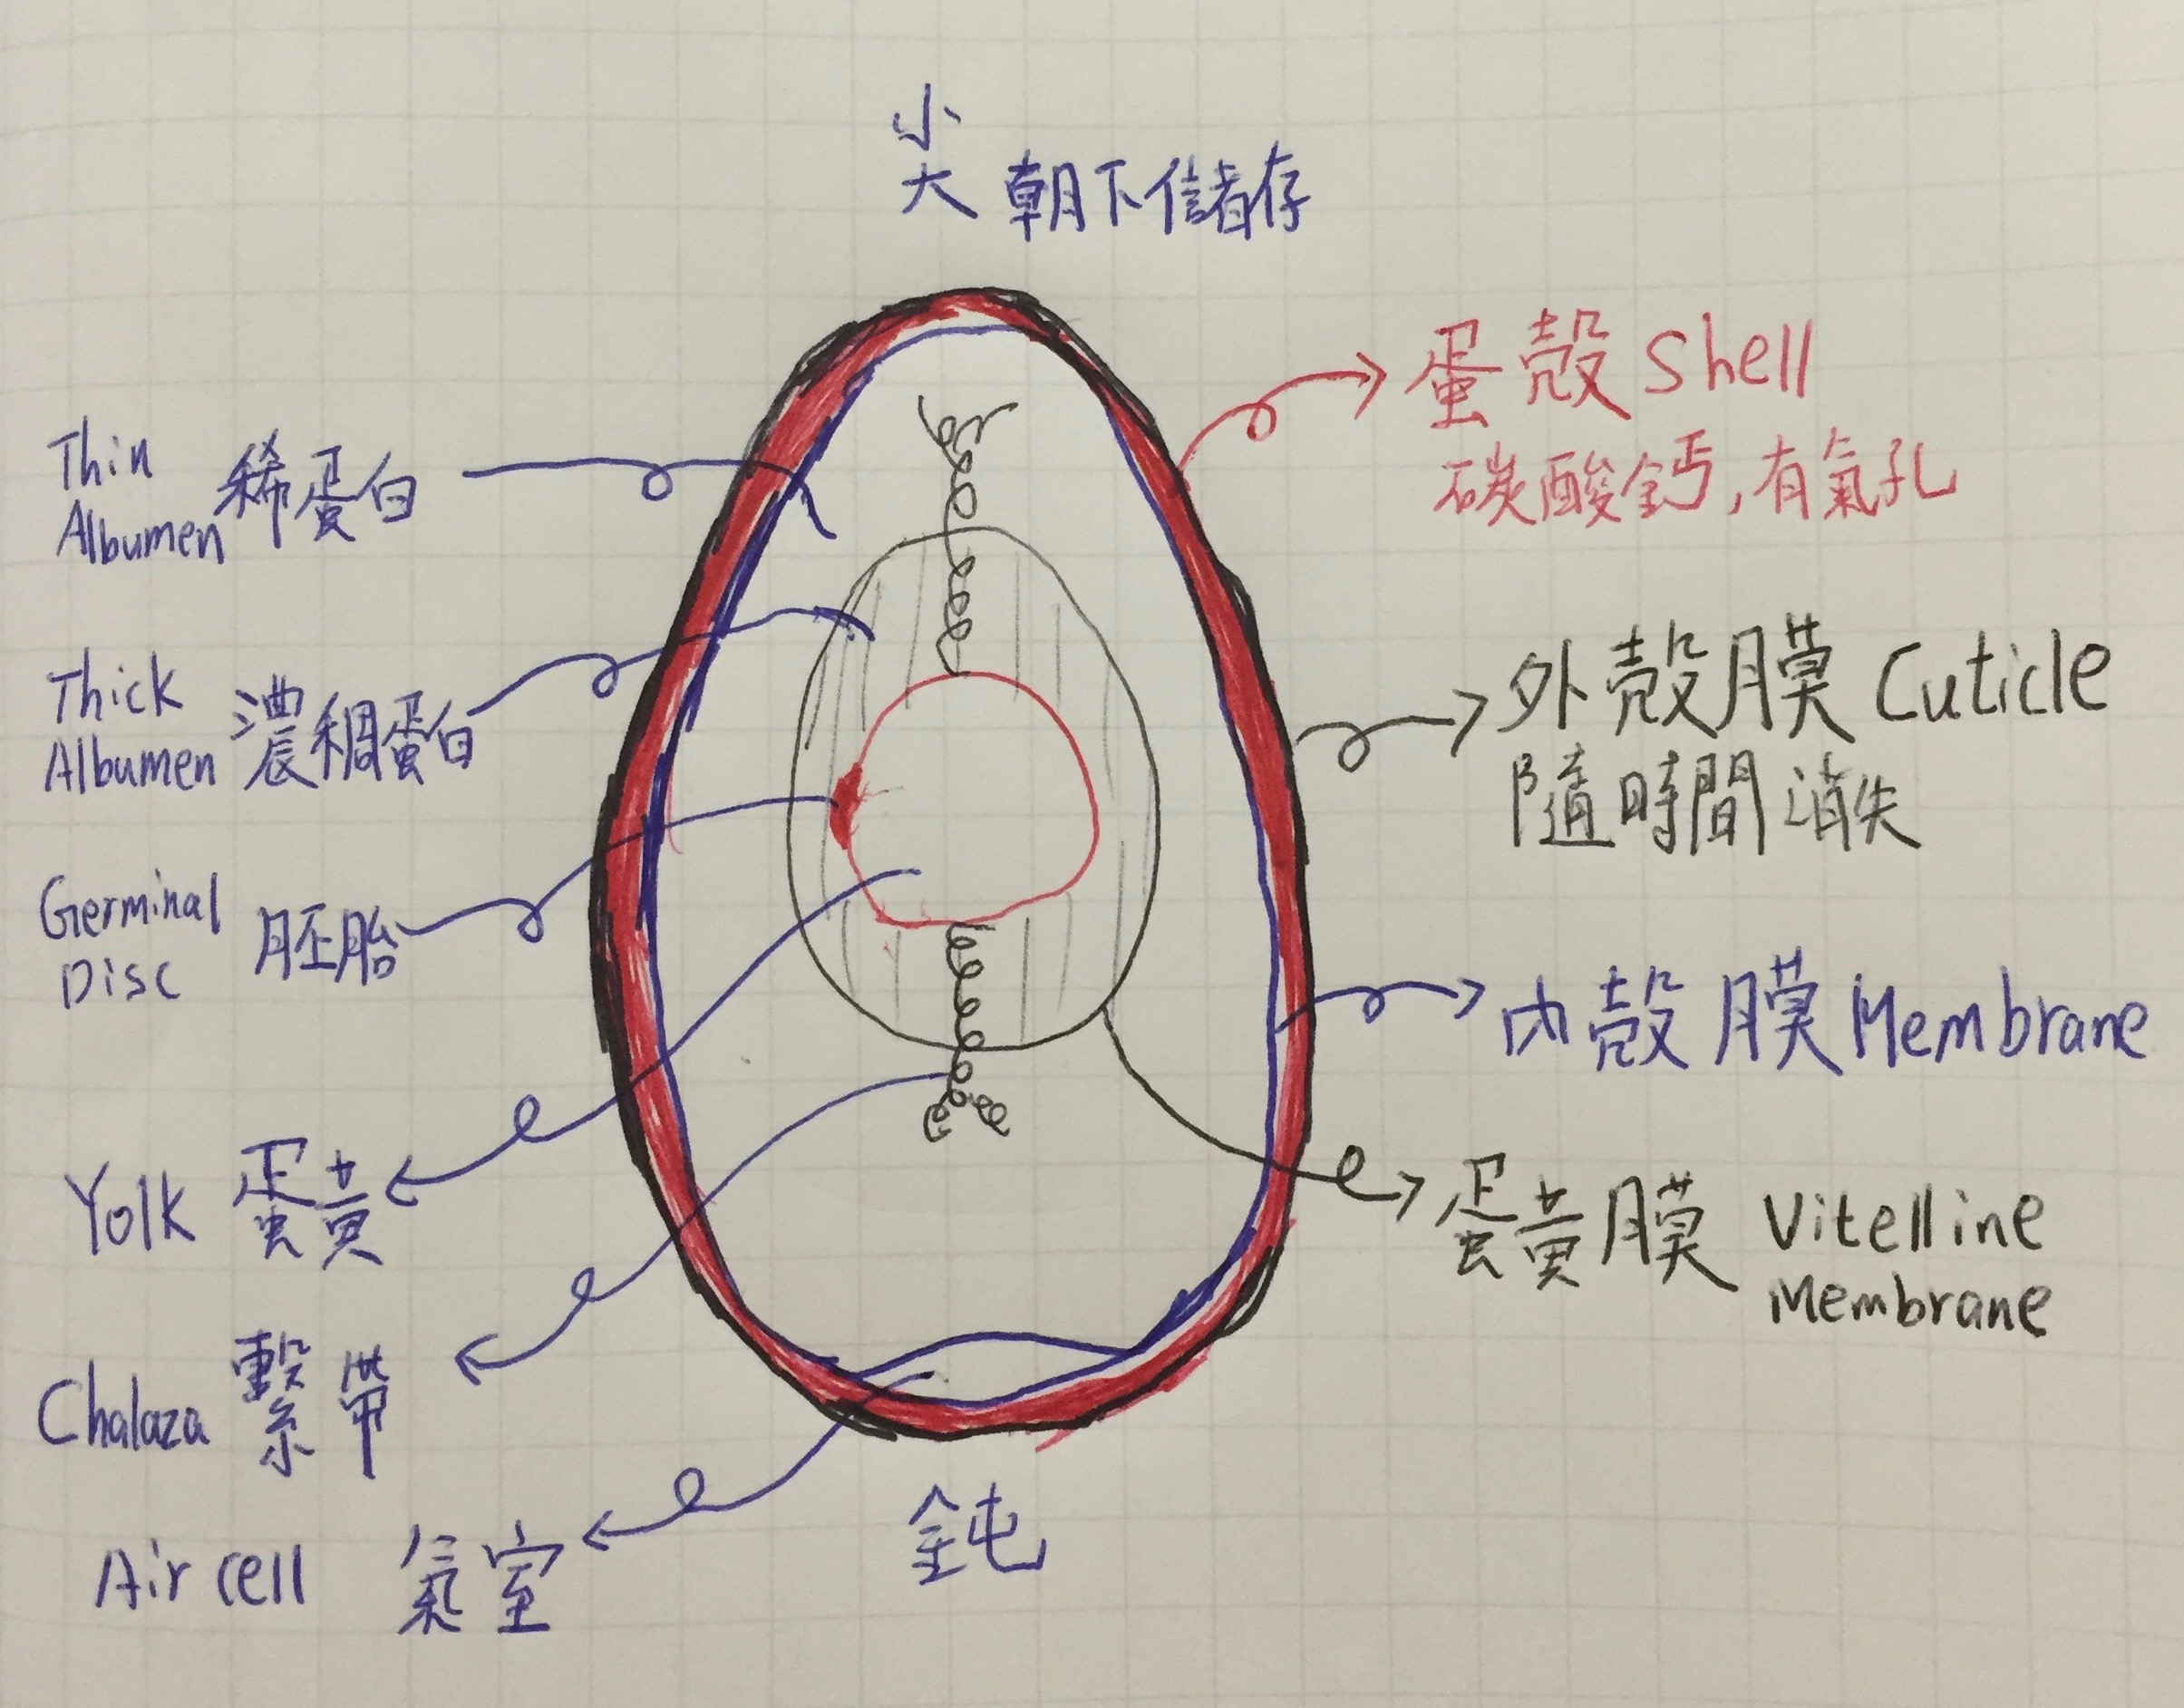 尖朝下儲存
蛋殼 Shell
碳酸鈣,有氣孔
Thin
Albumen 稀蛋白
外殼膜 Cuticle
隨時間消失
Thick
Albumen 濃稠蛋白
Germinal
Disc 胚胎
內殼膜 Membrane
Yolk 蛋黃
蛋黃膜 Vitelline
Membrane
Chalaza 繫帶
Air cell 氣室
鈍